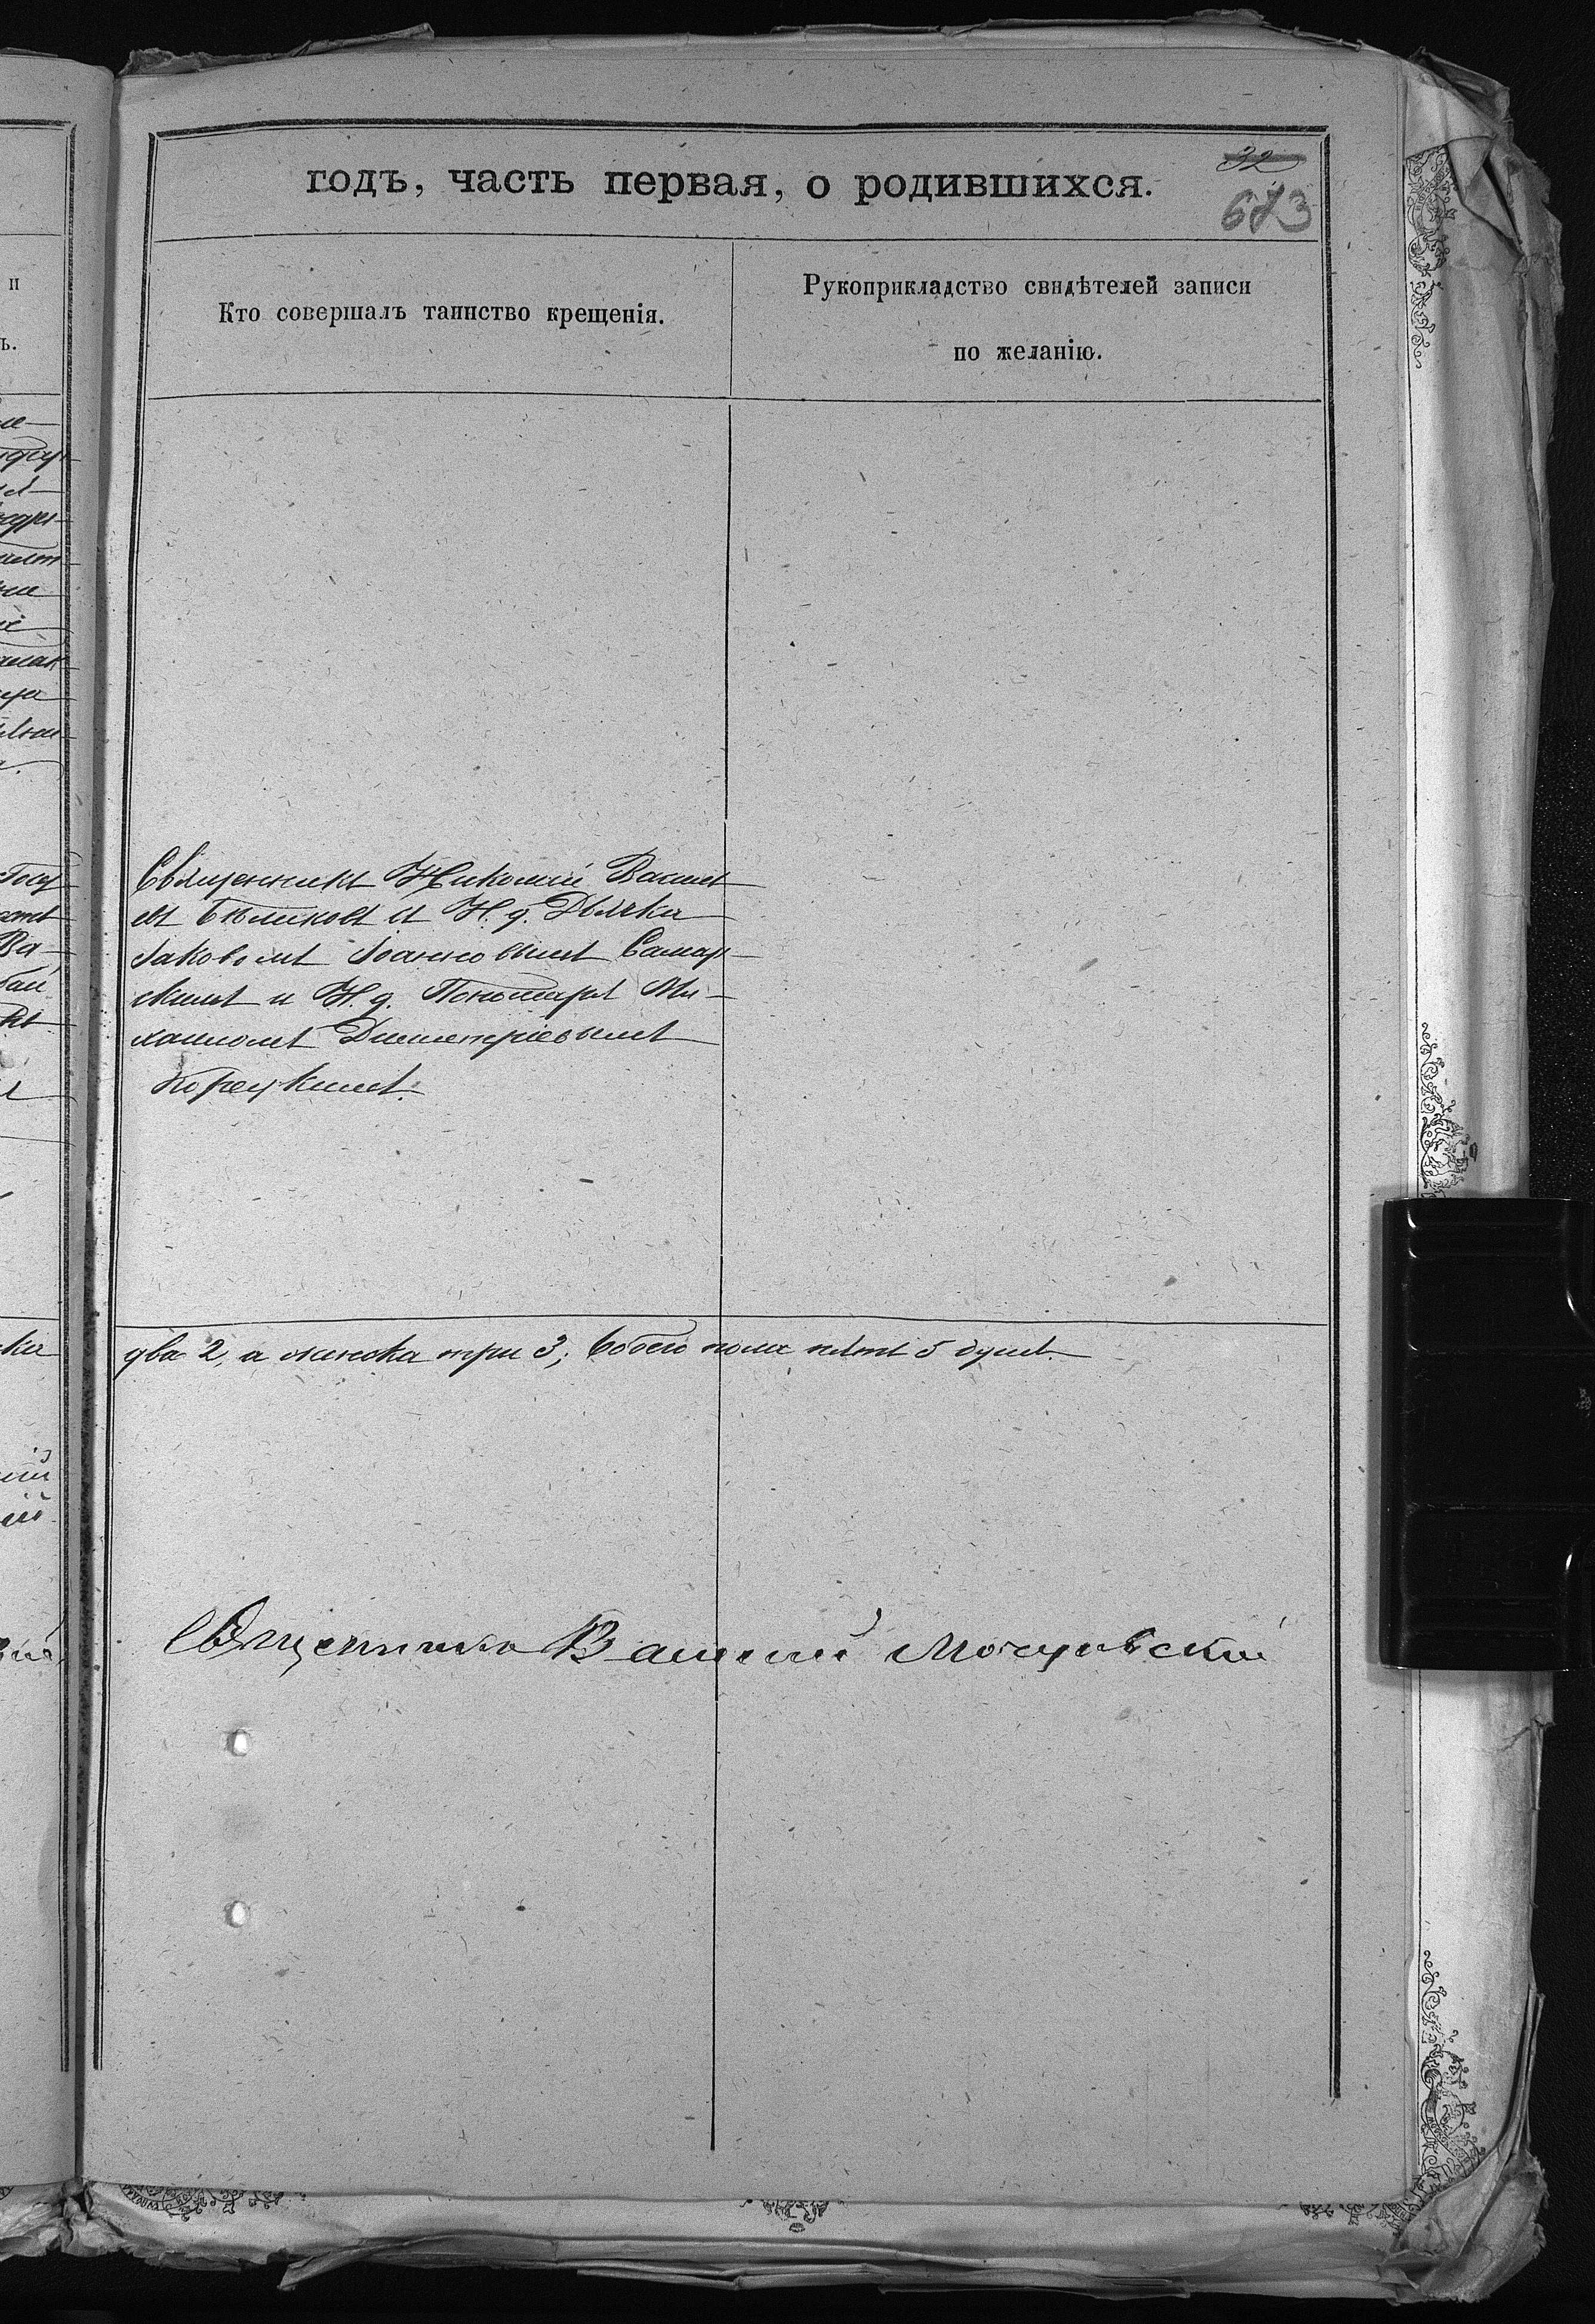 годъ, часть первая, о родившихся.
32
673
Кто совершалъ таинство крещенія.
Рукоприкладство свидѣтелей записи
по желанію.
Священникъ Николай Васил
Бѣликовъ съ И. д. Дьячка
Іаковомъ Іоанновымъ Самар
скимъ и И. д. Пономаря Ми-
хаиломъ Димитріевымъ
два 2, а женска три 3; Обоего пола пять 5 душъ.
Священникъ Василій